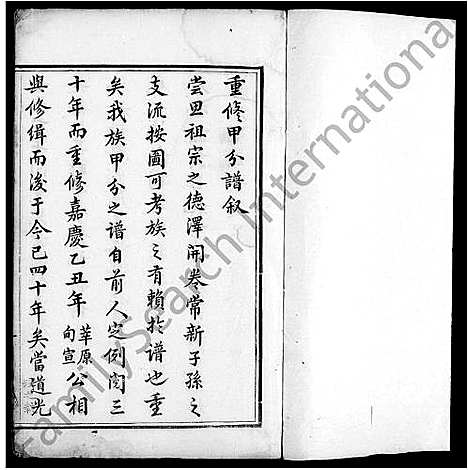 重修甲分譜叙
嘗思祖宗之德澤開卷常新子孫之
支流按圖可考族之有賴於譜也重
矣我族甲分之譜自前人定例閲三
十年而重修嘉慶乙丑年莘原向宣公相
與修緝而後于今已四十年矣當道光
FamilySearch International